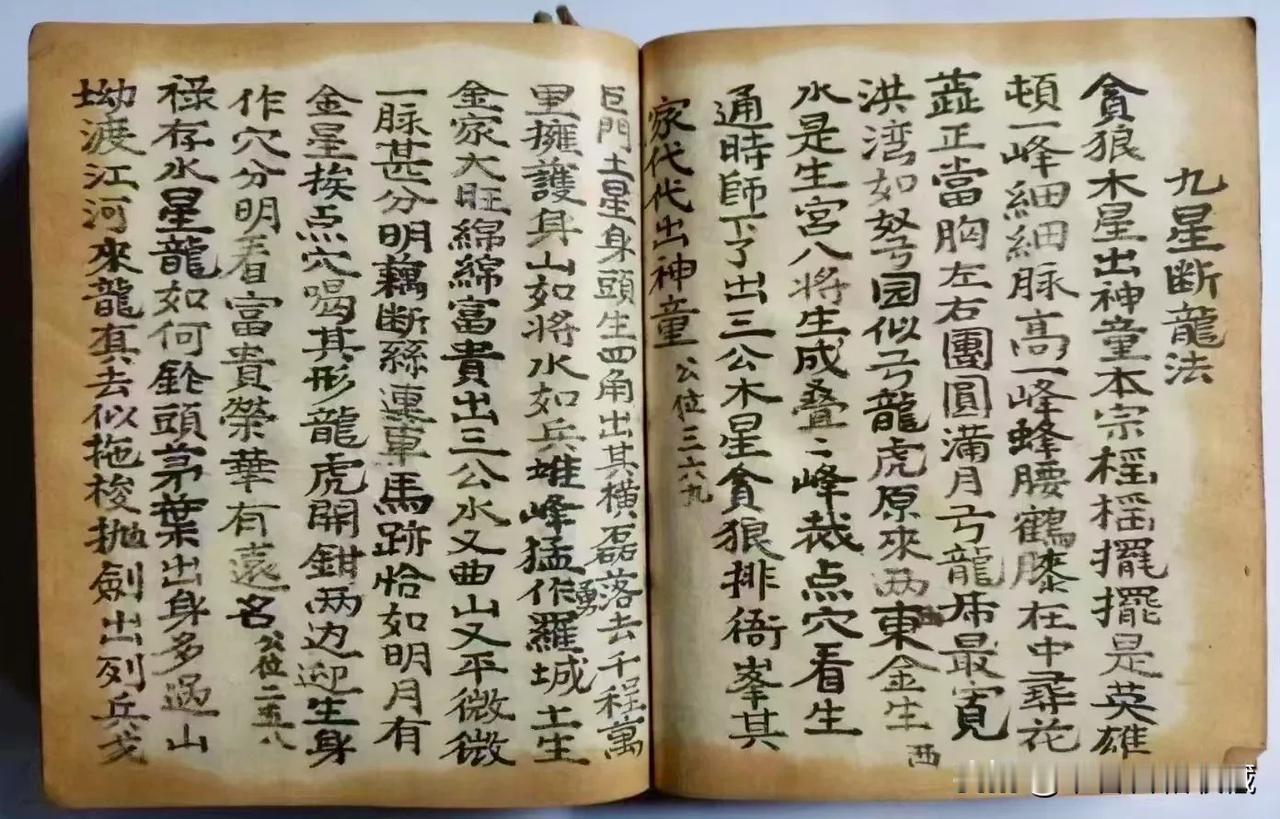 九星断龍法
貪狼木星出神童本宗榣榣擺擺是英雄
頓一峰細細脉高一峰蜂腰鶴膝在中尋花
蕋正當胸左右團圓滿月弓龍㡳最寛
洪湾如弩弓园似弓龍虎原來两東金生
西
水是生宮八將生成叠〻峰裁点穴看生
通時師下了出三公木星貪狼排衙峯其
家代代出神童 公位三六九
巨門土星身頭生四角出其横磊落去千程萬
里擁護身山如將水如兵雄峰猛作羅城土生
勇
金家大旺綿綿富貴出三公水又曲山又平微微
一脉甚分明藕断絲連車馬跡恰如明月有
金星挨点穴喝其形龍虎開鉗两边迎生身
作穴分明看富貴榮華有遠名 公位二五八
禄存水星龍如何鈐頭茅葉出身多過山
坳渡江河來龍真去似拖梭抛劍出列兵戈